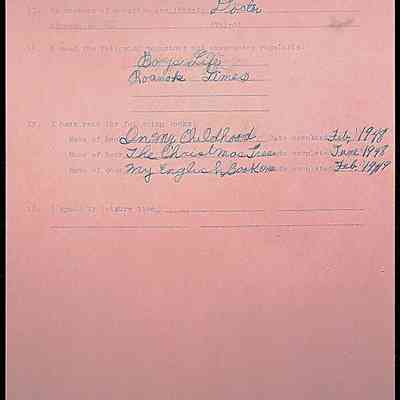 Doctor
I read the following magazines and newspapers regularly:
Boys Life
Roanoke Times
I have read the following books:
Name of book In My Childhood Date completed Feb. 1948
Name of book The Christmas Tree Date completed June 1948
Name of book My English Book one Date completed Feb 1949
I spend my leisure time,